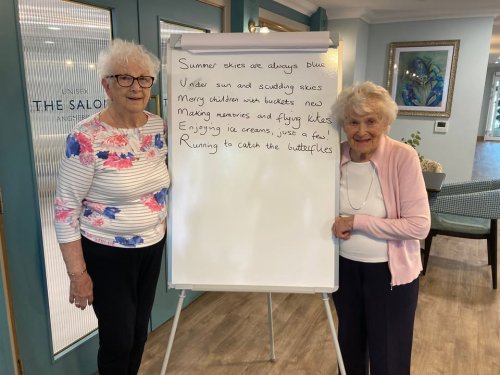 UNISEX
THE SALON
Summer skies are always blue
Under sun and scudding skies
Merry children with buckets new
Making memories and flying kites
Enjoying ice creams, just a few!
Running to catch the butterflies